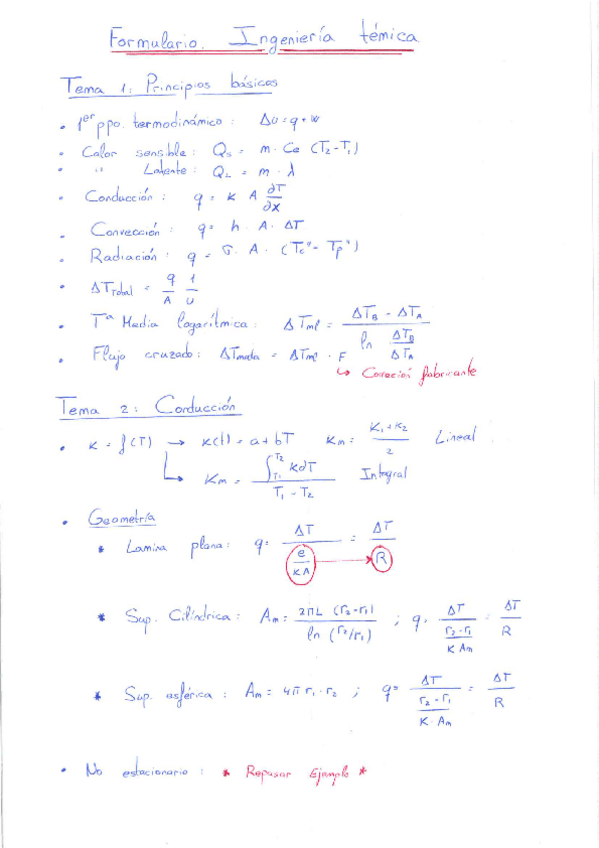 Formulario. Ingeniería témica
Tema 1: Principios básicos
• 1er ppo. termodinámico: ΔU = q + w
• Calor sensible: Qs = m · Ce (T2 - T1)
• " Latente: QL = m · λ
• Conducción: q = K A ∂T/∂x
• Convección: q = h · A · ΔT
• Radiación: q = σ · A · (Tc⁴ - Tp⁴)
• ΔTTotal = q/A 1/U
• Tª Media logarítmica: ΔTml = (ΔTB - ΔTA) / (ln ΔTB/ΔTA)
• Flujo cruzado: ΔTmeda = ΔTml · F
↳ Correción fabricante
Tema 2: Conducción
• K = f(T) → K(t) = a + bT Km = (K1 + K2)/2 Lineal
↳ Km = (∫T1T2 K∂T) / (T1 - T2) Integral
• Geometría
* Lamina plana: q = ΔT / (e/KA) = ΔT/R
* Sup. Cilíndrica: Am = 2πL (r2 - r1) / ln (r2/r1) ; q = ΔT / ((r2 - r1)/K Am) = ΔT/R
* Sup. esférica: Am = 4π r1 · r2 ; q = ΔT / ((r2 - r1)/K · Am) = ΔT/R
• No estacionario: * Repasar Ejemplo *